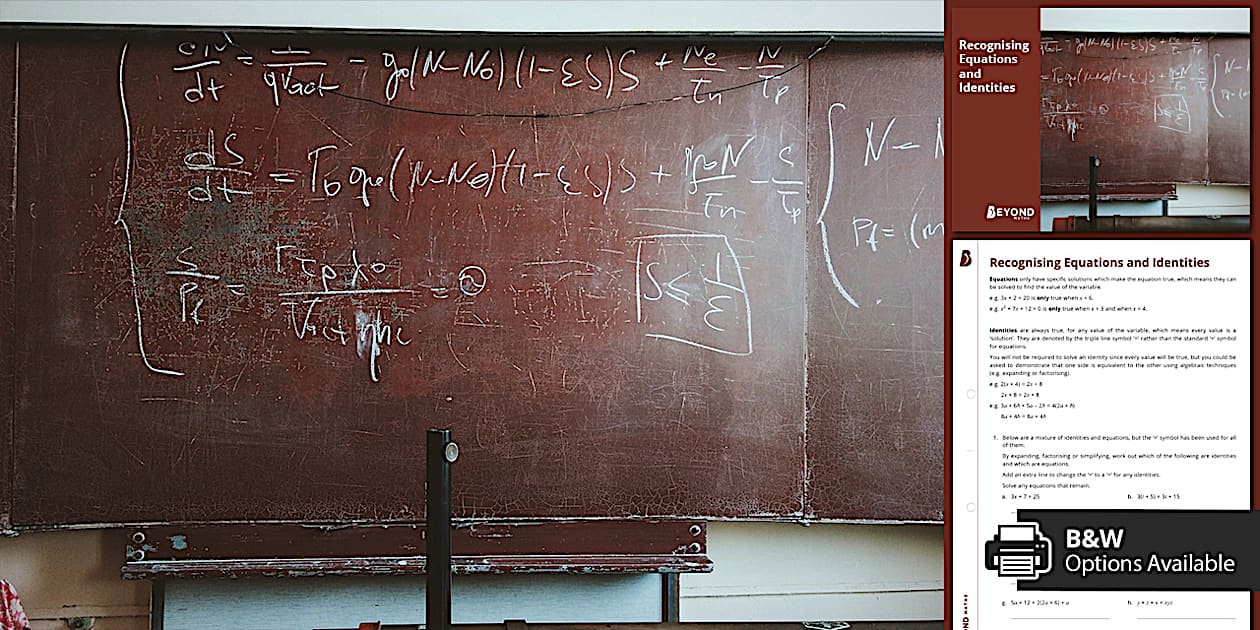 dN/dt = 1/qVact - g0(N-N0)(1-εS)S + Ne/τn - N/τp
dS/dt = Γ0 g0(N-N0)(1-εS)S + N/τn - S/τp
S/Pf = Γτpλ0/Vact ηhc = 2
S ≤ 1/ε
N -
Pf = (m
Recognising
Equations
and
Identities
BEYOND
MATHS
Recognising Equations and Identities
Equations only have specific solutions which make the equation true, which means they can
be solved to find the value of the variable.
e.g. 3x + 2 = 20 is only true when x = 6.
e.g. x² + 7x + 12 = 0 is only true when x = 3 and when x = 4.
Identities are always true, for any value of the variable, which means every value is a
'solution'. They are denoted by the triple line symbol '≡' rather than the standard '=' symbol
for equations.
You will not be required to solve an identity since every value will be true, but you could be
asked to demonstrate that one side is equivalent to the other using algebraic techniques
(e.g. expanding or factorising).
e.g. 2(x + 4) ≡ 2x + 8
2x + 8 ≡ 2x + 8
e.g. 3a + 6b + 5a - 2b ≡ 4(2a + b)
8a + 4b ≡ 8a + 4b
1. Below are a mixture of identities and equations, but the '=' symbol has been used for all
of them.
By expanding, factorising or simplifying, work out which of the following are identities
and which are equations.
Add an extra line to change the '=' to a '≡' for any identities.
Solve any equations that remain.
a. 3x + 7 = 25
b. 3(t + 5) = 3t + 15
B&W
Options Available
g. 5a + 12 = 2(2a + 6) + a
h. y + z + x = xyz